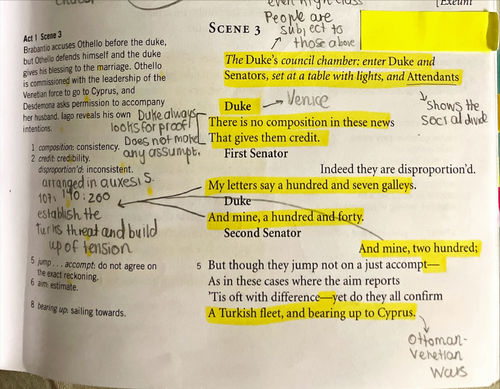 even high class
People are
subject to
those above
[Exeunt
Act 1 Scene 3
Brabantio accuses Othello before the duke,
but Othello defends himself and the duke
gives his blessing to the marriage. Othello
is commissioned with the leadership of the
Venetian force to go to Cyprus, and
Desdemona asks permission to accompany
her husband. Iago reveals his own
intentions.
Duke always
looks for proof
Does not make
any assumpt.
1 composition: consistency.
2 credit: credibility.
disproportion'd: inconsistent.
arranged in auxesis
107:140:200
establish the
turks threat and build
up of tension
5 jump . . . accompt: do not agree on
the exact reckoning.
6 aim: estimate.
8 bearing up: sailing towards.
SCENE 3
The Duke's council chamber: enter Duke and
Senators, set at a table with lights, and Attendants
Duke
Venice
shows the
social divide
There is no composition in these news
That gives them credit.
First Senator
Indeed they are disproportion'd.
My letters say a hundred and seven galleys.
Duke
And mine, a hundred and forty.
Second Senator
And mine, two hundred;
5 But though they jump not on a just accompt—
As in these cases where the aim reports
'Tis oft with difference—yet do they all confirm
A Turkish fleet, and bearing up to Cyprus.
Ottoman-
Venetian
Wars